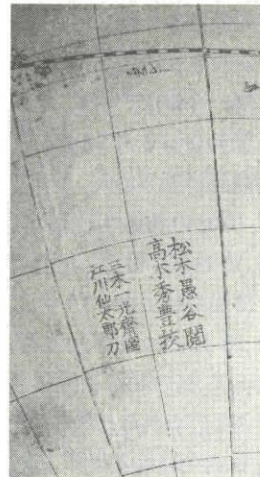 松木愚谷閲
高木秀豊挍
三木一光齋圖
江川仙太郎刀